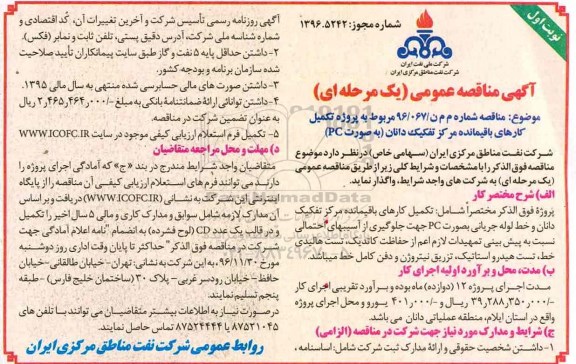 نوبت اول
شماره مجوز: ۱۳۹۶.۵۲۴۲
شرکت ملی نفت ایران
شرکت نفت مناطق مرکزی ایران
آگهی مناقصه عمومی (یک مرحله ای)
موضوع: مناقصه شماره م م ن/۹۶/۰۶۷ مربوط به پروژه تکمیل
کارهای باقیمانده مرکز تفکیک دانان (به صورت PC)
شرکت نفت مناطق مرکزی ایران (سهامی خاص) در نظر دارد موضوع
مناقصه فوق الذکر را با مشخصات و شرایط کلی زیر از طریق مناقصه عمومی
(یک مرحله ای) به شرکت های واجد شرایط، واگذار نماید.
الف) شرح مختصر کار
پروژه فوق الذکر مختصراً شامل: تکمیل کارهای باقیمانده مرکز تفکیک
دانان و خط لوله جریانی بصورت PC جهت جلوگیری از آسیبهای احتمالی
نسبت به پیش بینی تمهیدات لازم اعم از حفاظت کاتدیک، تست هالیدی
خط، تست هیدرو استاتیک، تزریق نیتروژن و دفن کامل خط میباشد.
ب) مدت، محل و برآورد اولیه اجرای کار
مدت اجرای پروژه ۱۲ (دوازده) ماه بوده و برآورد تقریبی اجرای کار
۳۹,۲۸۸,۳۵۰,۰۰۰ ریال و ۴۰۱,۰۰۰ یورو و محل اجرای پروژه
واقع در استان ایلام، منطقه عملیاتی دانان می باشد.
ج) شرایط و مدارک مورد نیاز جهت شرکت در مناقصه (الزامی)
۱- داشتن شخصیت حقوقی و ارائه مدارک ثبت شرکت شامل: اساسنامه،
آگهی روزنامه رسمی تأسیس شرکت و آخرین تغییرات آن، کد اقتصادی و
شماره شناسه ملی شرکت، آدرس دقیق پستی، تلفن ثابت و نمابر (فکس).
۲- داشتن حداقل پایه ۵ نفت و گاز طبق سایت پیمانکاران تأیید صلاحیت
شده سازمان برنامه و بودجه کشور.
۳- داشتن صورت های مالی حسابرسی شده منتهی به سال مالی ۱۳۹۵.
۴- داشتن توانائی ارائۀ ضمانتنامۀ بانکی به مبلغ ۲,۴۶۵,۴۶۴,۰۰۰ ریال
به عنوان تضمین شرکت در مناقصه.
۵- تکمیل فرم استعلام ارزیابی کیفی موجود در سایت WWW.ICOFC.IR
د) مهلت و محل مراجعه متقاضیان
متقاضیان واجد شرایط مندرج در بند «ج» که آمادگی اجرای پروژه را
دارند می توانند فرم های استعلام ارزیابی کیفی آن مناقصه را از پایگاه
اینترنتی این شرکت به نشانی (WWW.ICOFC.IR) دریافت و بر اساس
آن مدارک لازمه شامل سوابق و مدارک کاری و مالی ۵ سال اخیر را تکمیل
و در قالب یک عدد CD (لوح فشرده) به انضمام "نامه اعلام آمادگی جهت
شرکت در مناقصه فوق الذکر" حداکثر تا پایان وقت اداری روز دوشنبه
مورخ ۹۶/۱۱/۳۰، به این شرکت به نشانی: تهران- خیابان طالقانی- خیابان
حافظ- خیابان رودسر غربی- پلاک ۳۰ (ساختمان خلیج فارس) - طبقه
پنجم تسلیم نمایند.
در صورت نیاز به اطلاعات بیشتر متقاضیان می توانند با تلفن های
۸۷۵۲۱۰۴۵ یا ۸۷۵۲۴۴۴۴ تماس حاصل نمایند.
روابط عمومی شرکت نفت مناطق مرکزی ایران